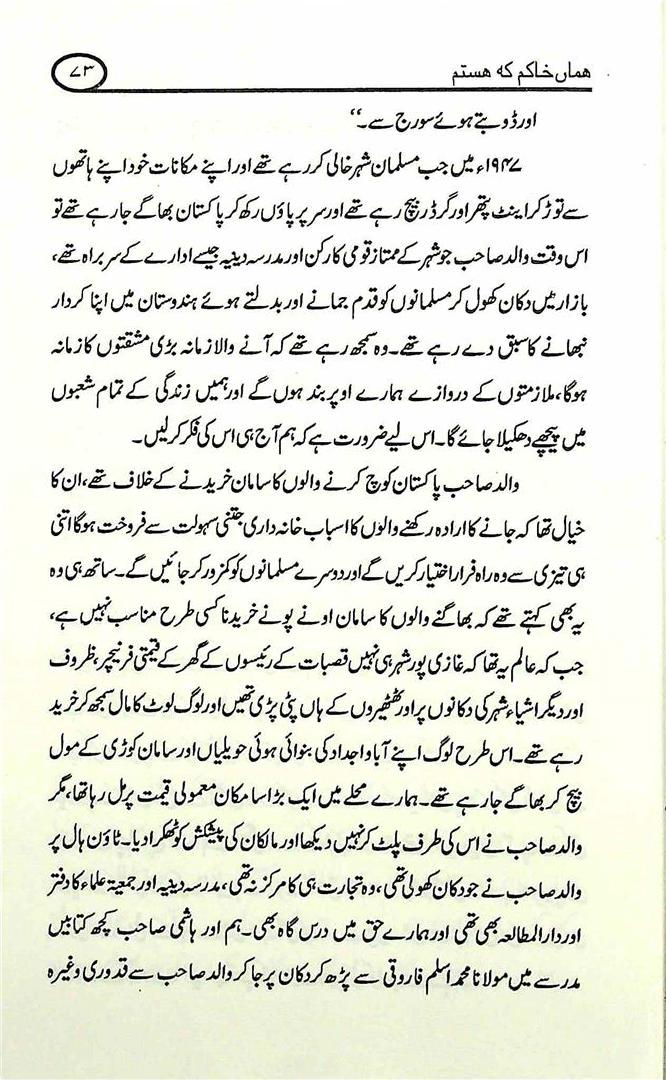 ہماں خاکم کہ ہستم
۷۳
اور ڈوبتے ہوئے سورج سے۔‘‘
۱۹۴۷ء میں جب مسلمان شہر خالی کر رہے تھے اور اپنے مکانات خود اپنے ہاتھوں
سے توڑ کر اینٹ پتھر اور گرڈر بیچ رہے تھے اور سر پر پاؤں رکھ کر پاکستان بھاگے جا رہے تھے تو
اس وقت والد صاحب جو شہر کے ممتاز قومی کارکن اور مدرسہ دینیہ جیسے ادارے کے سربراہ تھے،
بازار میں دکان کھول کر مسلمانوں کو قدم جمانے اور بدلتے ہوئے ہندوستان میں اپنا کردار
نبھانے کا سبق دے رہے تھے۔ وہ سمجھ رہے تھے کہ آنے والا زمانہ بڑی مشقتوں کا زمانہ
ہوگا، ملازمتوں کے دروازے ہمارے اوپر بند ہوں گے اور ہمیں زندگی کے تمام شعبوں
میں پیچھے دھکیلا جائے گا۔ اس لیے ضرورت ہے کہ ہم آج ہی اس کی فکر کر لیں۔
والد صاحب پاکستان کوچ کرنے والوں کا سامان خریدنے کے خلاف تھے، ان کا
خیال تھا کہ جانے کا ارادہ رکھنے والوں کا اسباب خانہ داری جتنی سہولت سے فروخت ہوگا اتنی
ہی تیزی سے وہ راہ فرار اختیار کریں گے اور دوسرے مسلمانوں کو کمزور کر جائیں گے۔ ساتھ ہی وہ
یہ بھی کہتے تھے کہ بھاگنے والوں کا سامان اونے پونے خریدنا کسی طرح مناسب نہیں ہے،
جب کہ عالم یہ تھا کہ غازی پور شہر ہی نہیں قصبات کے رئیسوں کے گھر کے قیمتی فرنیچر، ظروف
اور دیگر اشیاء شہر کی دکانوں پر اور کٹھیروں کے ہاں پٹی پڑی تھیں اور لوگ لوٹ کا مال سمجھ کر خرید
رہے تھے۔ اس طرح لوگ اپنے آباواجداد کی بنوائی ہوئی حویلیاں اور سامان کوڑی کے مول
بیچ کر بھاگے جا رہے تھے۔ ہمارے محلے میں ایک بڑا سا مکان معمولی قیمت پر مل رہا تھا، مگر
والد صاحب نے اس کی طرف پلٹ کر نہیں دیکھا اور مالکان کی پیشکش کو ٹھکرا دیا۔ ٹاؤن ہال پر
والد صاحب نے جو دکان کھولی تھی، وہ تجارت ہی کا مرکز نہ تھی، مدرسہ دینیہ اور جمعیۃ علماء کا دفتر
اور دارالمطالعہ بھی تھی اور ہمارے حق میں درس گاہ بھی۔ ہم اور ہاشمی صاحب کچھ کتابیں
مدرسے میں مولانا محمد اسلم فاروقی سے پڑھ کر دکان پر جا کر والد صاحب سے قدوری وغیرہ